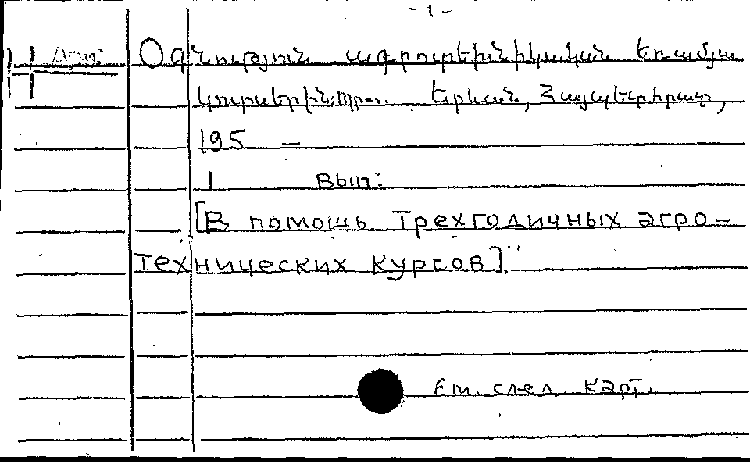 - 1 -
Օգնություն ագրոտեխնիկական եռամյա
կուրսերին: Երևան, Հայպետհրատ,
195 –
1 Вып:
[В помощь трехгодичных агро–
технических курсов].
См. след. карт.